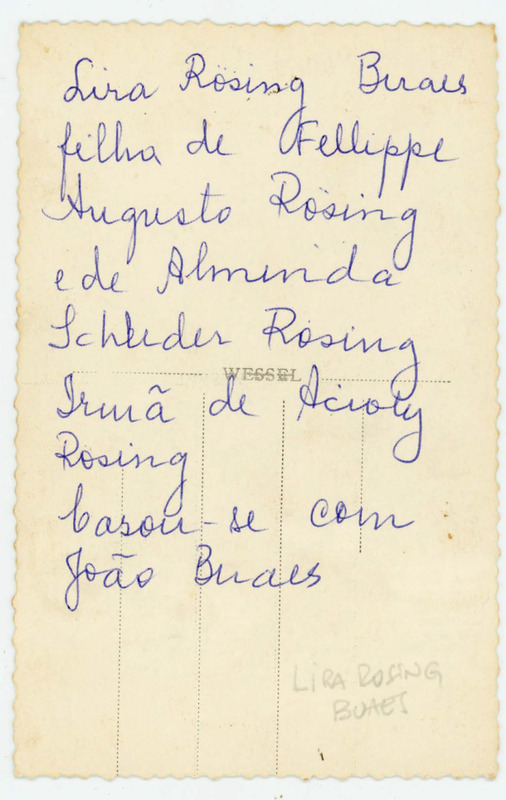 Lira Rösing Buaes
filha de Fellippe
Augusto Rösing
e de Almerinda
Schluder Rösing
WESSEL
Irmã de Acioly
Rosing
Casou-se com
João Buaes
LIRA ROSING
BUAES